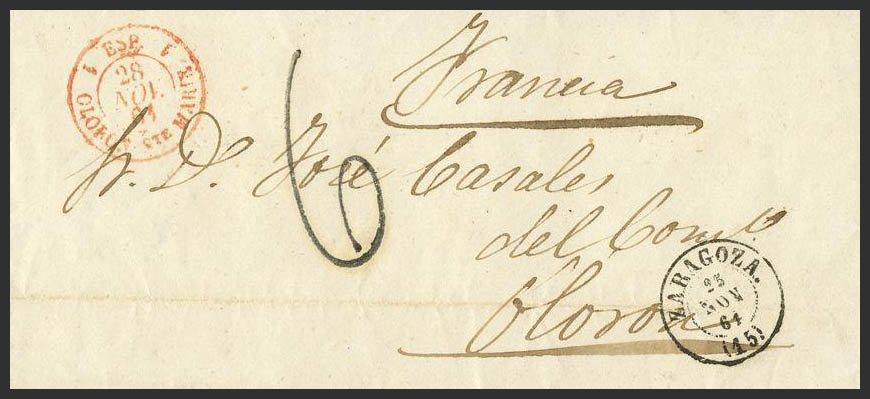 1 ESP. 1
28
NOV.
OLORON STE MARIE
6
Francia
Sr. D. José Casales
del Com.o
Oloron
ZARAGOZA.
25
NOV
64
(45)